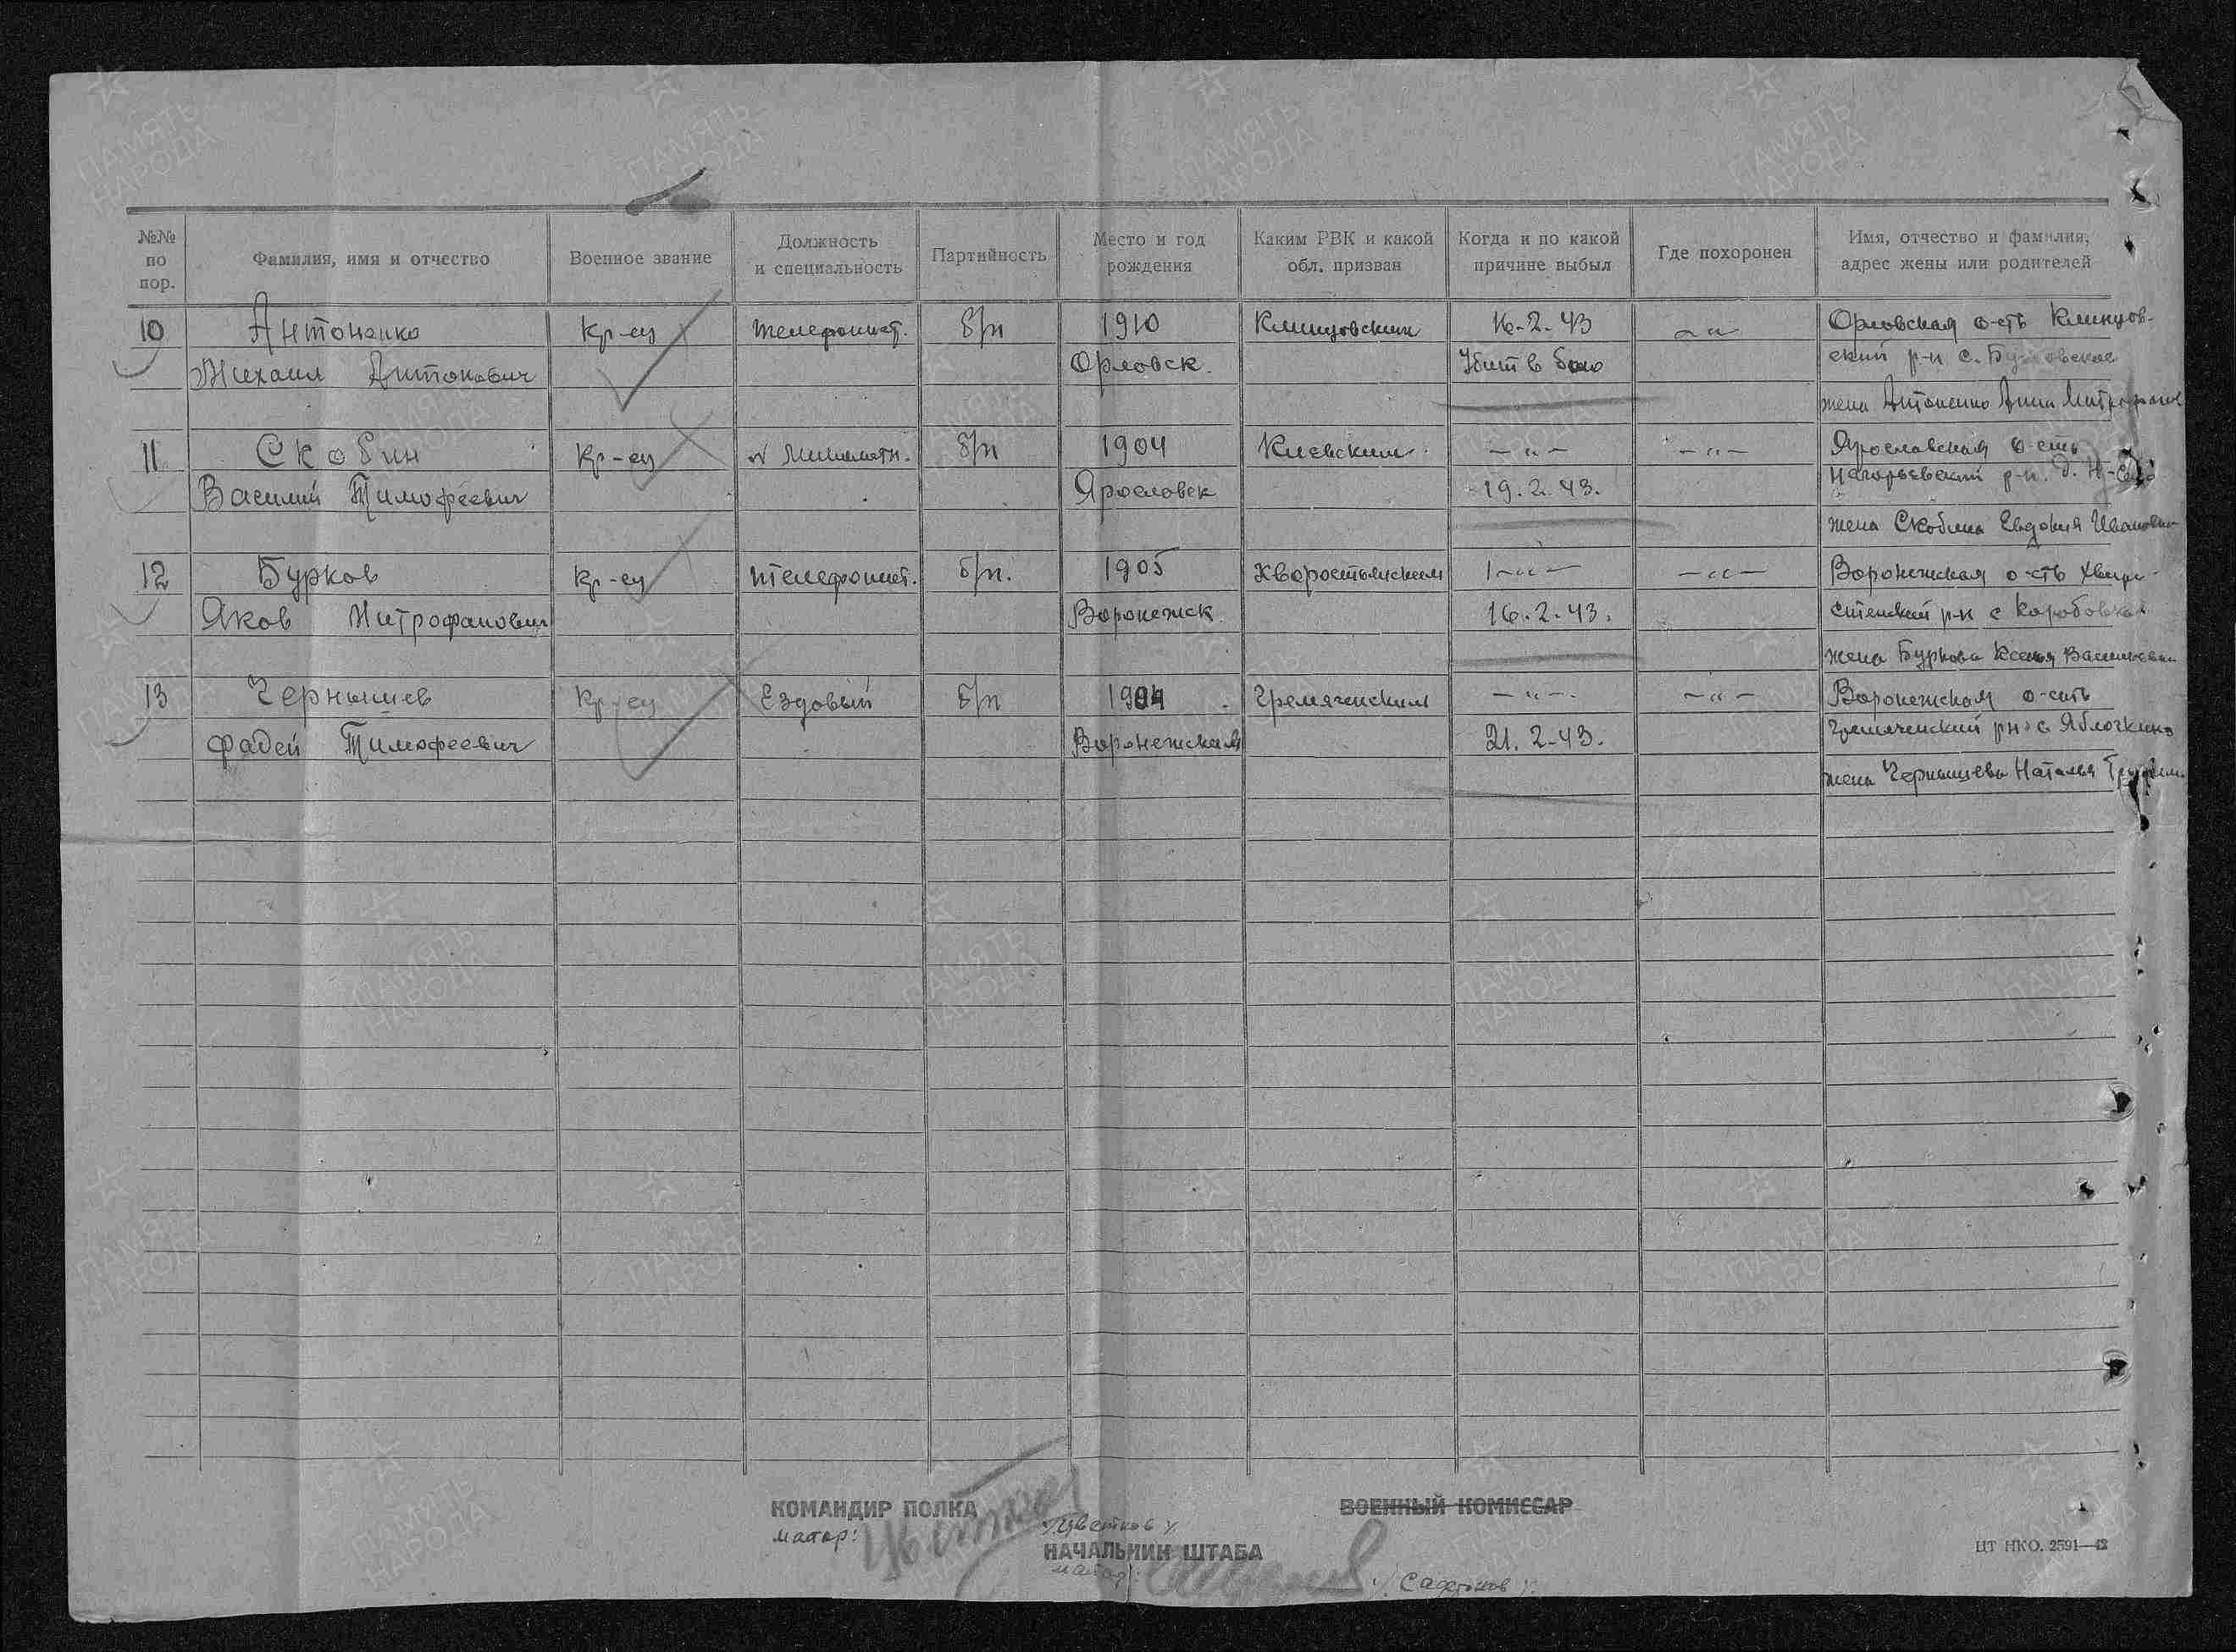 №№ по пор.
Фамилия, имя и отчество
Военное звание
Должность и специальность
Партийность
Место и год рождения
Каким РВК и какой обл. призван
Когда и по какой причине выбыл
Где похоронен
Имя, отчество и фамилия, адрес жены или родителей
10 Антоненко Кр-ец телефонист. б/п 1910 Клинцовским 16.2.43 -〃- Орловская о-сть Клинцов-
Михаил Антонович Орловск. Убит в бою ский р-н с.
жена Антоненко Анна
11 Скобин Кр-ец б/п 1904 Киевским -〃- -〃- Ярославская о-сть
Василий Тимофеевич Ярославск 19.2.43. Нагорьевский р-н. д.
жена Скобина Евдокия
12 Бурков Кр-ец телефонист. б/п. 1905 Хворостянским -〃- -〃- Воронежская о-сть
Яков Митрофанович Воронежск 16.2.43. р-н с Коробовка
жена Буркова Ксенья
13 Чернышев Кр-ец Ездовый б/п 1904 Гремяченским -〃-. -〃- Воронежская о-сть
Фадей Тимофеевич Воронежская 21.2.43. Гремяченский рн с Яблочкино
жена Чернышева Наталья
КОМАНДИР ПОЛКА
майор:
/Цветков/
ВОЕННЫЙ КОМИССАР
НАЧАЛЬНИК ШТАБА
майор:
ЦТ НКО. 2591—42
ПАМЯТЬ НАРОДА